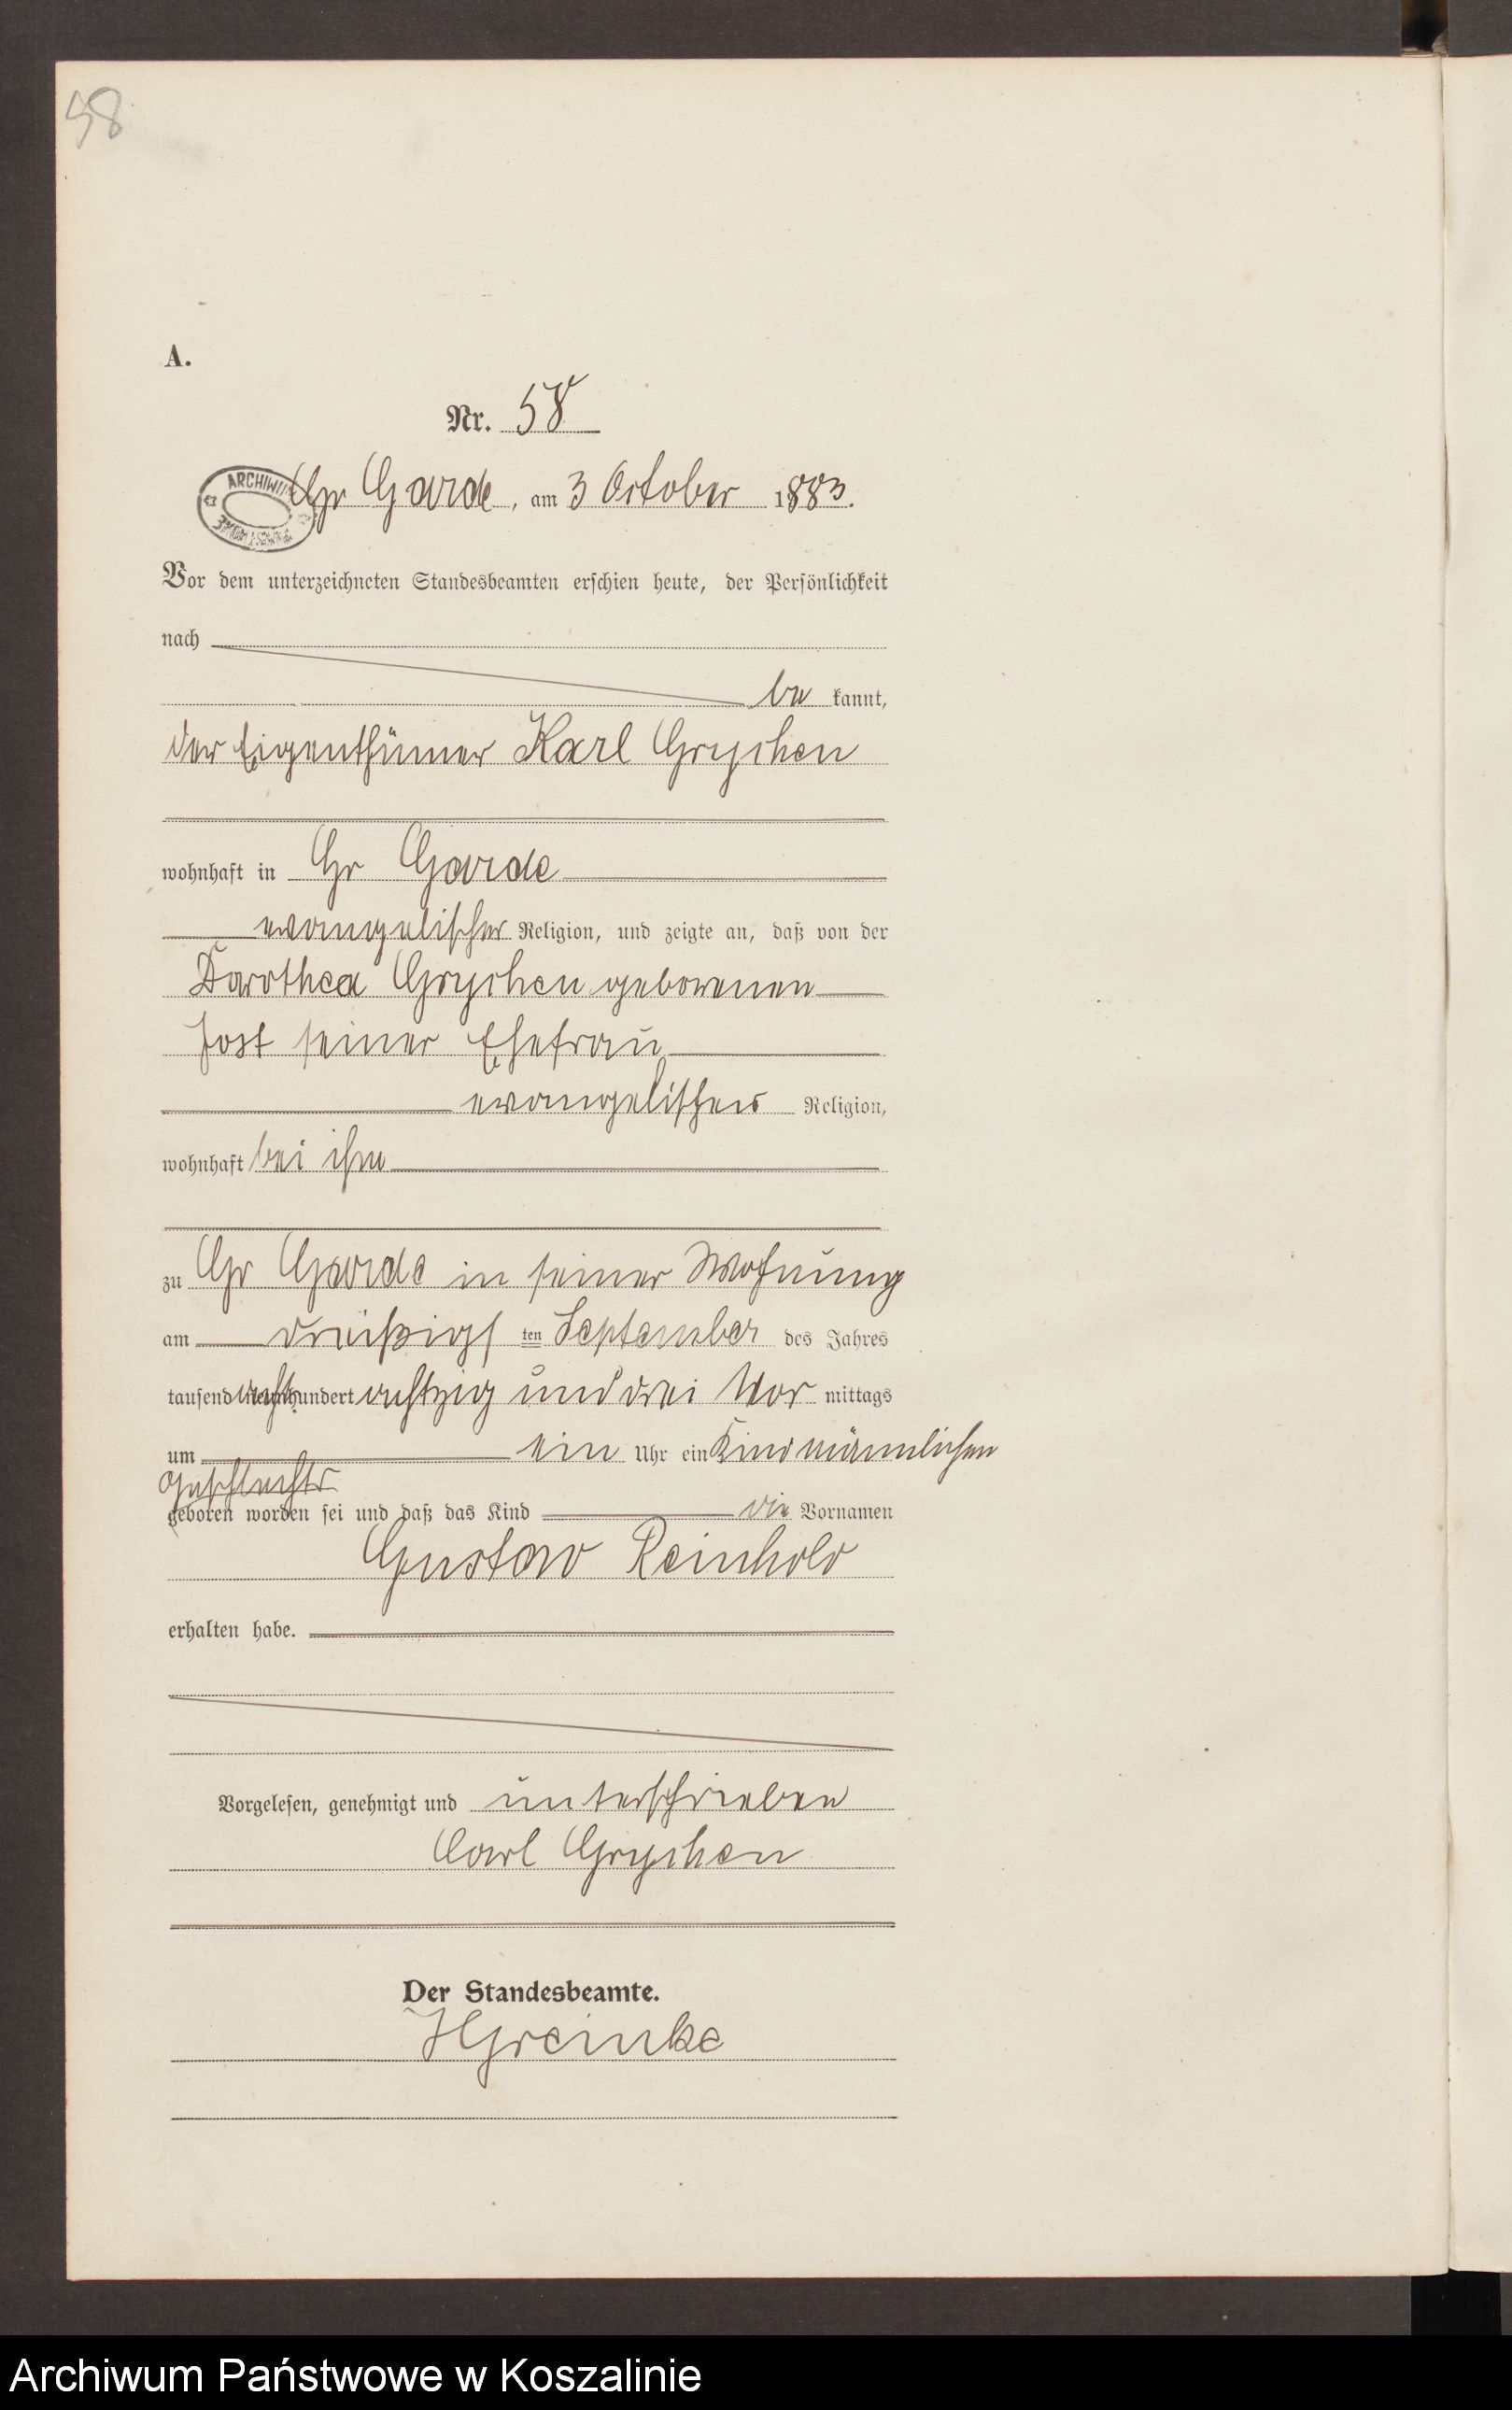 58
A.
Nr. 58
ARCHIWUM
Gr Garde, am 3 October 1883.
Vor dem unterzeichneten Standesbeamten erschien heute, der Persönlichkeit
nach
be kannt,
der Eigenthümer Karl Grychen
wohnhaft in Gr Garde
evangelischer Religion, und zeigte an, daß von der
Dorothea Grychen geborenen
Jost seiner Ehefrau
evangelischer Religion,
wohnhaft bei ihm
zu Gr Garde in seiner Wohnung
am dreißigs ten September des Jahres
tausend acht hundert achtzig und drei Vor mittags
um ein Uhr ein Kind männlichen
Geschlechts
geboren worden sei und daß das Kind die Vornamen
Gustav Reinhold
erhalten habe.
Vorgelesen, genehmigt und unterschrieben
Carl Grychen
Der Standesbeamte.
Greinke
Archiwum Państwowe w Koszalinie